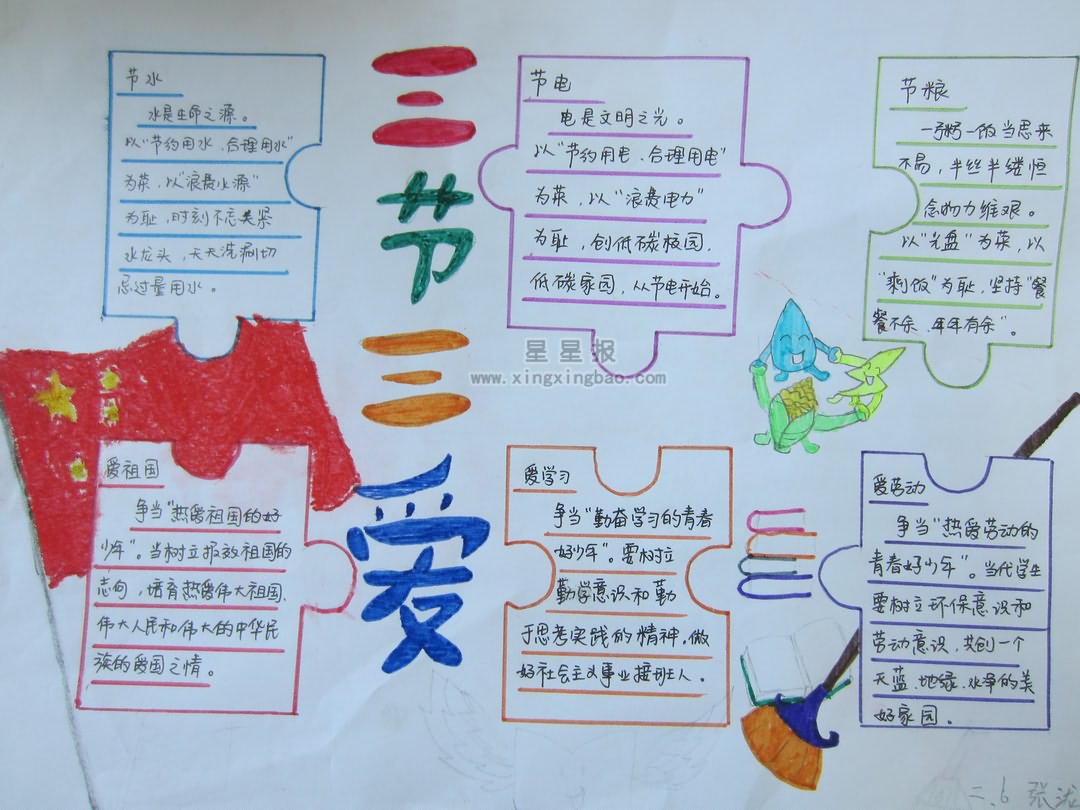 三节三爱
节水
水是生命之源。
以"节约用水、合理用水"
为荣，以"浪费水源"
为耻，时刻不忘关紧
水龙头，天天洗漱切
忌过量用水。
节电
电是文明之光。
以"节约用电、合理用电"
为荣，以"浪费电力"
为耻，创低碳校园，
低碳家园，从节电开始。
节粮
一粥一饭当思来
不易，半丝半缕恒
念物力维艰。
以"光盘"为荣，以
"剩饭"为耻，坚持"餐
餐不余，年年有余"。
星星报
www.xingxingbao.com
爱祖国
争当"热爱祖国的好
少年"。当树立报效祖国的
志向，培育热爱伟大祖国、
伟大人民和伟大的中华民
族的爱国之情。
爱学习
争当"勤奋学习的青春
好少年"。要树立
勤学意识和勤
于思考实践的精神，做
好社会主义事业接班人。
爱劳动
争当"热爱劳动的
青春好少年"。当代学生
要树立环保意识和
劳动意识，共创一个
天蓝、地绿、水净的美
好家园。
二6 张